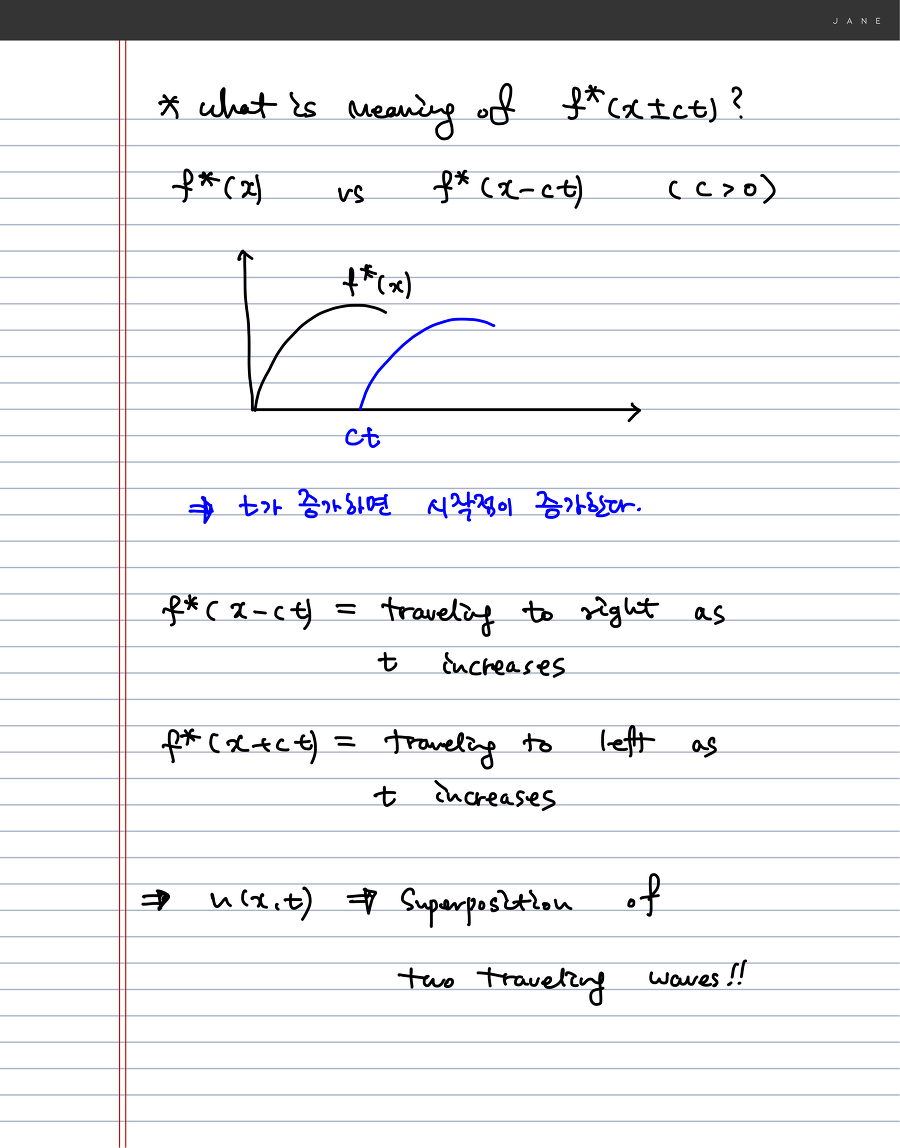 JANE
* what is meaning of f*(x±ct)?
f*(x) vs f*(x-ct) (c>0)
f*(x)
ct
⇒ t가 증가하면 시작점이 증가한다.
f*(x-ct) = traveling to right as
t increases
f*(x+ct) = traveling to left as
t increases
⇒ u(x,t) ⇒ Superposition of
two traveling waves!!